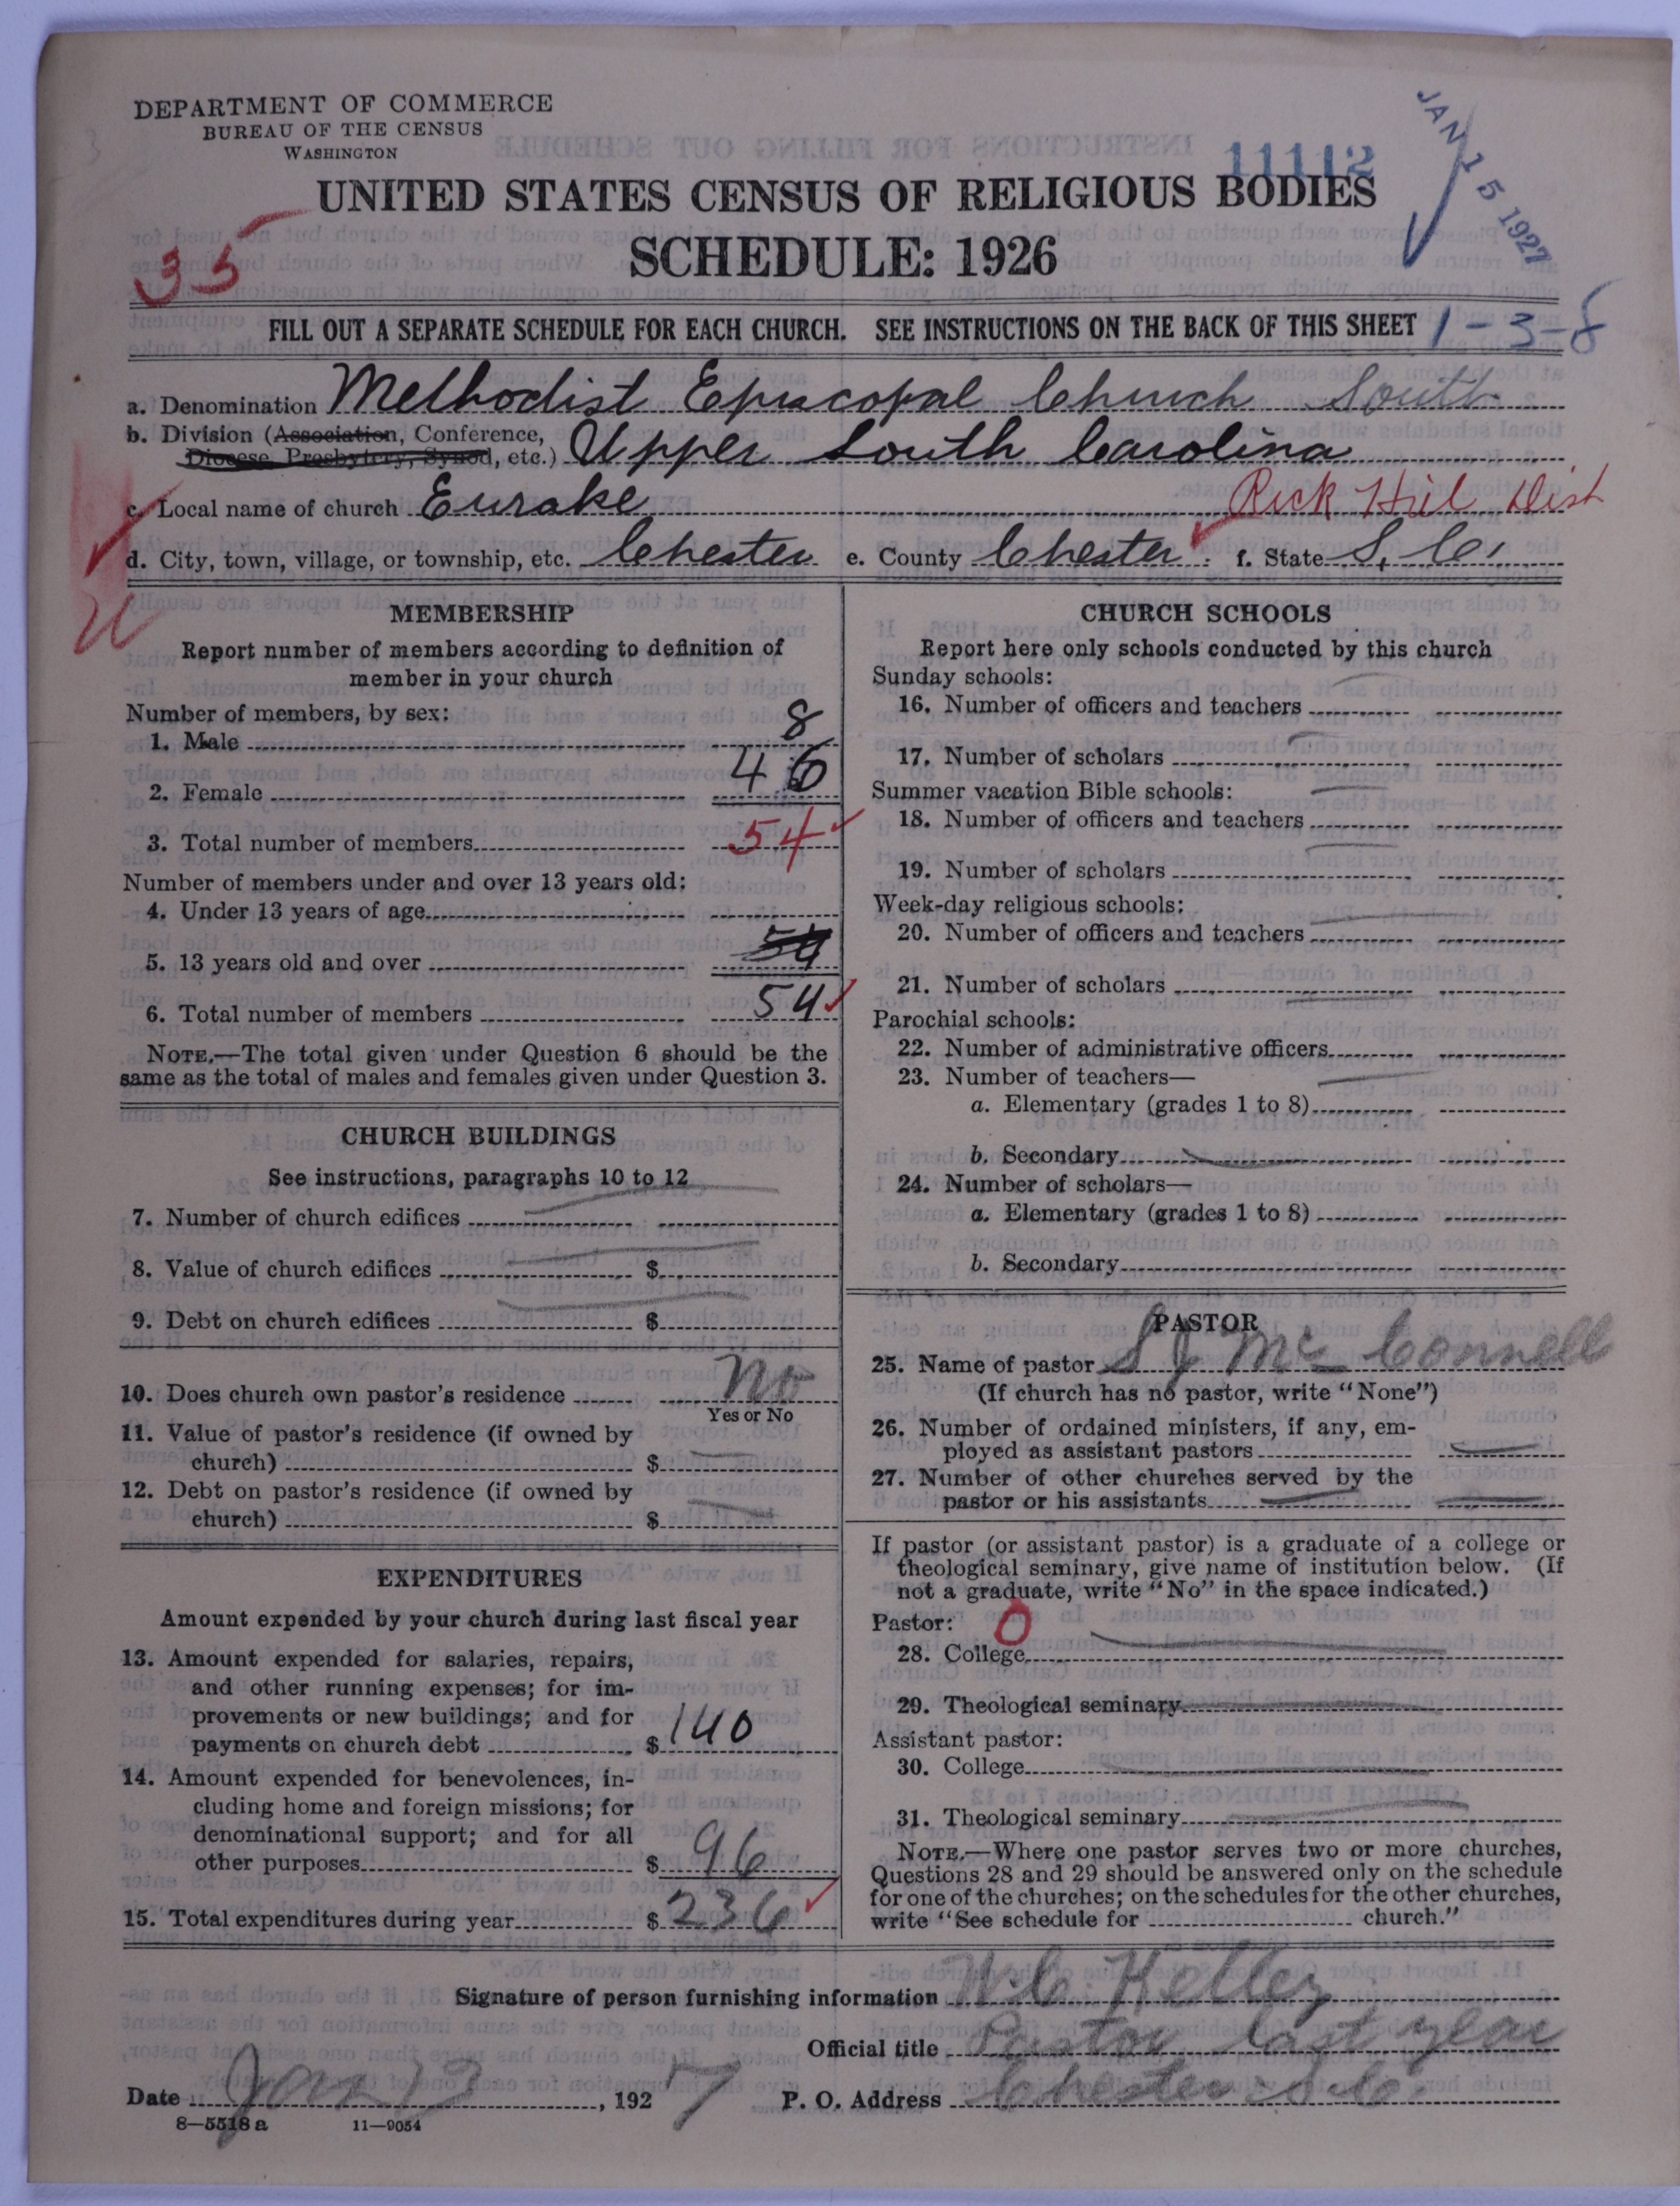 DEPARTMENT OF COMMERCE
BUREAU OF THE CENSUS
WASHINGTON
11112
JAN 15 1927
UNITED STATES CENSUS OF RELIGIOUS BODIES
35
SCHEDULE: 1926
FILL OUT A SEPARATE SCHEDULE FOR EACH CHURCH. SEE INSTRUCTIONS ON THE BACK OF THIS SHEET 1-3-8
a. Denomination Methodist Episcopal Church South
b. Division (Association, Conference,
Diocese, Presbytery, Synod, etc.) Upper South Carolina
c. Local name of church Eurake Rick Hill Dist
d. City, town, village, or township, etc. Chester e. County Chester f. State S. C.
MEMBERSHIP
Report number of members according to definition of
member in your church
Number of members, by sex:
1. Male 8
2. Female 46
3. Total number of members 54
Number of members under and over 13 years old:
4. Under 13 years of age
5. 13 years old and over 54
6. Total number of members 54
NOTE.—The total given under Question 6 should be the
same as the total of males and females given under Question 3.
CHURCH BUILDINGS
See instructions, paragraphs 10 to 12
7. Number of church edifices
8. Value of church edifices $
9. Debt on church edifices $
10. Does church own pastor's residence No
Yes or No
11. Value of pastor's residence (if owned by
church) $
12. Debt on pastor's residence (if owned by
church) $
EXPENDITURES
Amount expended by your church during last fiscal year
13. Amount expended for salaries, repairs,
and other running expenses; for im-
provements or new buildings; and for
payments on church debt $ 140
14. Amount expended for benevolences, in-
cluding home and foreign missions; for
denominational support; and for all
other purposes $ 96
15. Total expenditures during year $ 236
CHURCH SCHOOLS
Report here only schools conducted by this church
Sunday schools:
16. Number of officers and teachers
17. Number of scholars
Summer vacation Bible schools:
18. Number of officers and teachers
19. Number of scholars
Week-day religious schools:
20. Number of officers and teachers
21. Number of scholars
Parochial schools:
22. Number of administrative officers
23. Number of teachers—
a. Elementary (grades 1 to 8)
b. Secondary
24. Number of scholars—
a. Elementary (grades 1 to 8)
b. Secondary
PASTOR
25. Name of pastor S J McConnell
(If church has no pastor, write "None")
26. Number of ordained ministers, if any, em-
ployed as assistant pastors
27. Number of other churches served by the
pastor or his assistants
If pastor (or assistant pastor) is a graduate of a college or
theological seminary, give name of institution below. (If
not a graduate, write "No" in the space indicated.)
Pastor: 0
28. College
29. Theological seminary
Assistant pastor:
30. College
31. Theological seminary
NOTE.—Where one pastor serves two or more churches,
Questions 28 and 29 should be answered only on the schedule
for one of the churches; on the schedules for the other churches,
write "See schedule for church."
Signature of person furnishing information W. C. Kelley
Official title Pastor last year
Date Jan 13, 1927 P. O. Address Chester S. C.
8—5518 a 11—9054